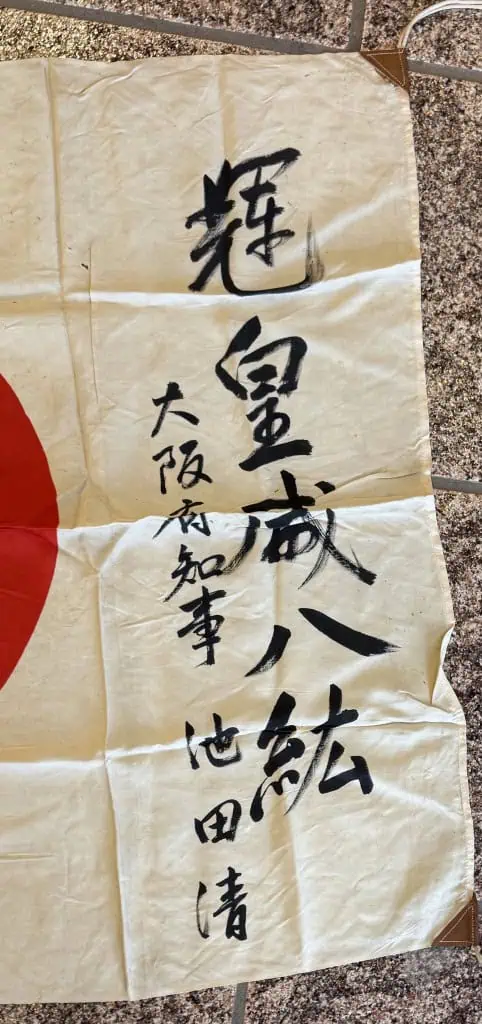 輝皇威八紘
大阪府知事 池田清